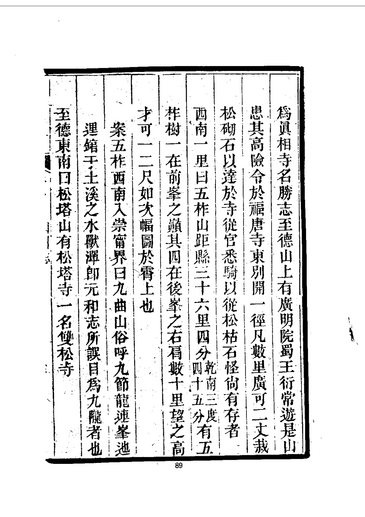 為眞相寺名勝志至德山上有廣明院蜀王衍常遊是山
患其高險令於福唐寺東別開一徑凡數里廣可二丈栽
松砌石以達於寺從官悉騎以從松枯石怪尙有存者
西南一里曰五柞山距縣三十六里四分乾南三度四十五分有五
柞樹一在前峯之巔其四在後峯之右肩數十里望之高
才可一二尺如次幅圖於霄上也
案五柞西南入崇甯界曰九曲山俗呼九節龍連峯迤
邐綰于土溪之水獻潭卽元和志所誤目為九隴者也
至德東南曰松塔山有松塔寺一名雙松寺
89